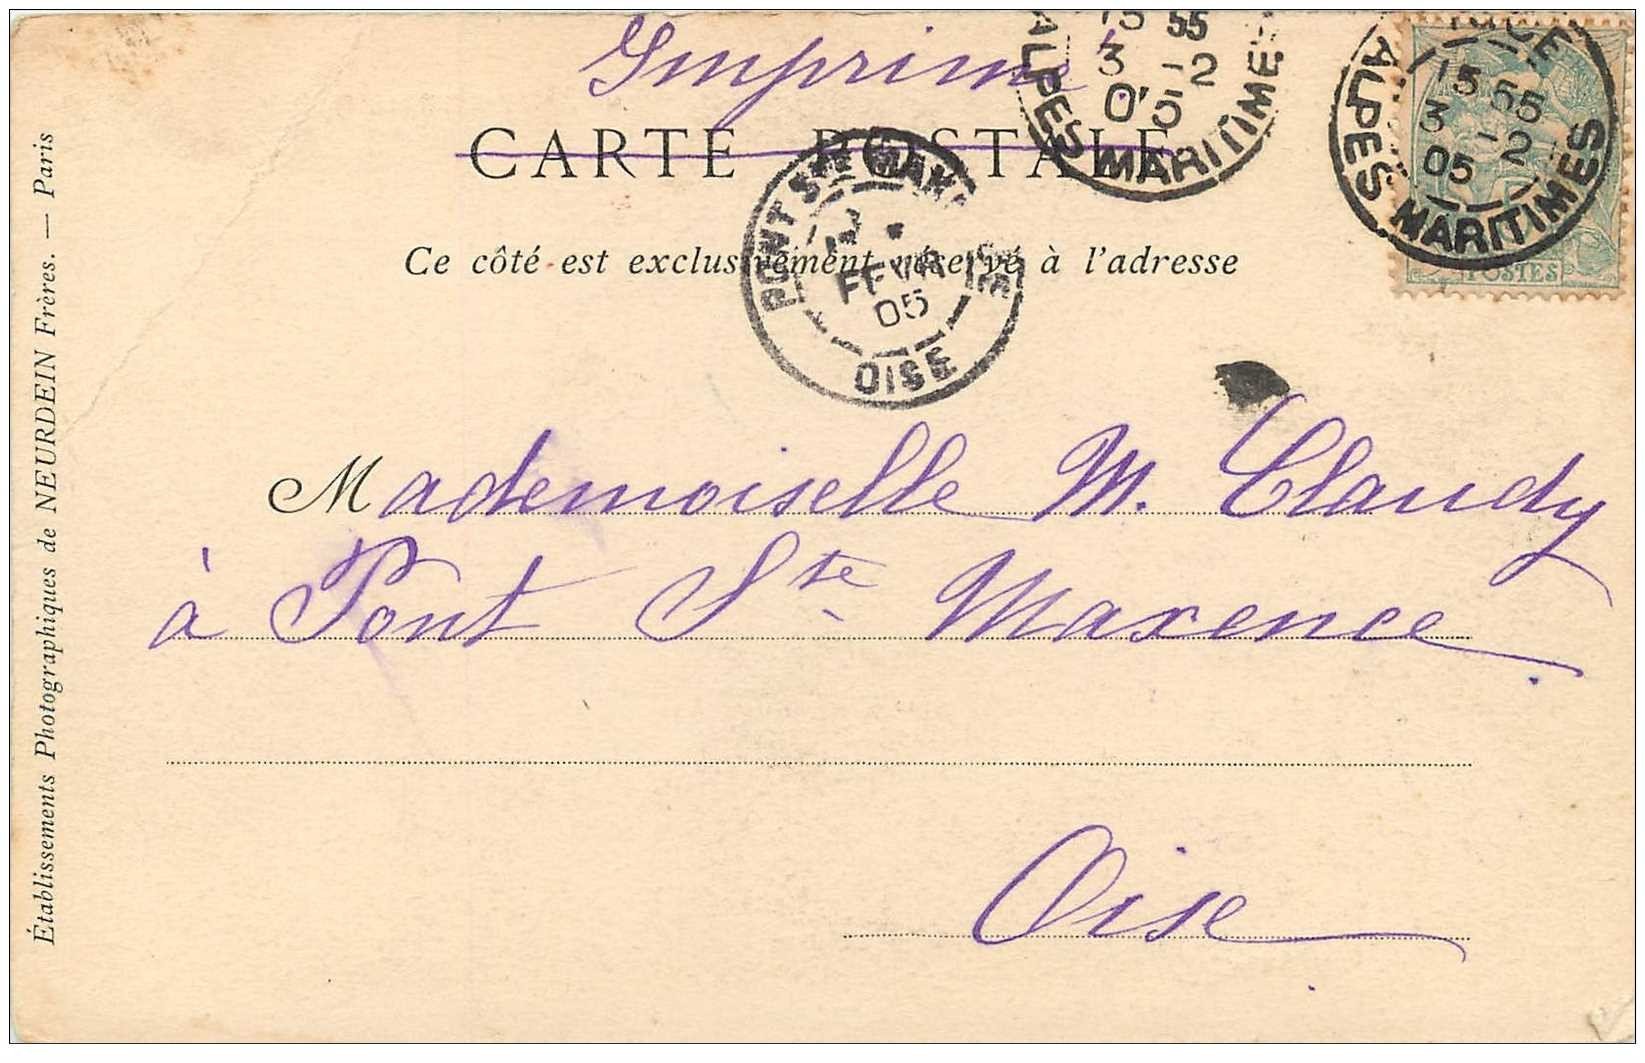 Imprimé
CARTE POSTALE
Ce côté est exclusivement réservé à l'adresse
15 55
3 -2
05
ALPES MARITIMES
NICE
15 55
3 -2
05
ALPES MARITIMES
POSTES
PONT STE MAXENCE
FEVR
05
OISE
Mademoiselle M. Claudy
à Pont Ste Maxence
Oise
Établissements Photographiques de NEURDEIN Frères. — Paris